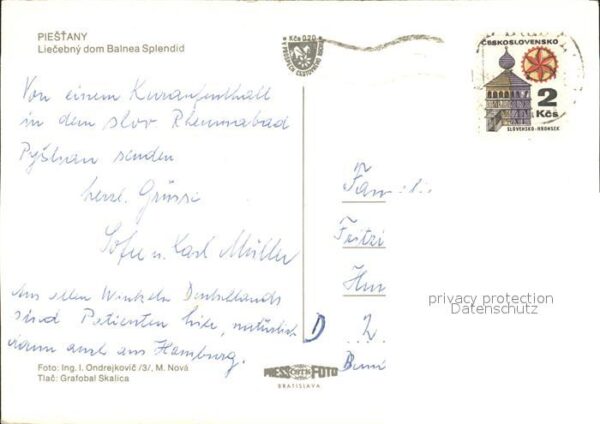 PIEŠŤANY
Liečebný dom Balnea Splendid
Kčs 0,20
ČESKOSLOVENSKO
2
Kčs
SLOVENSKO-HRONSEK
Von einem Kuraufenthalt
in dem slov Rheumabad
Pyštian senden
herzl. Grüsse
Sofie u. Karl Müller
Aus allen Winkeln Deutschlands
sind Patienten hier, natürlich
darum auch aus Hamburg.
Famili
Fritzi
D 2
privacy protection
Datenschutz
Foto: Ing. I. Ondrejkovič /3/, M. Nová
Tlač: Grafobal Skalica
PRESSFOTO
BRATISLAVA